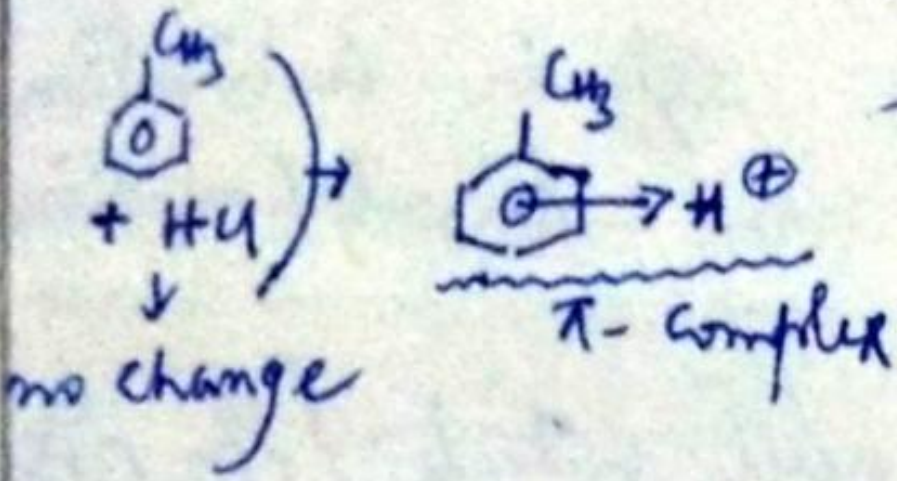 CH3
+ HCl
no change
CH3
H ⊕
π- Complex